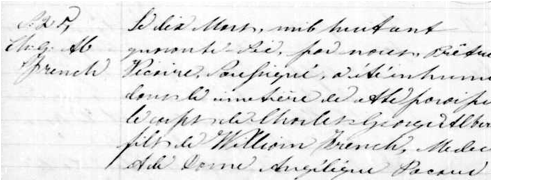 Ch. G. Al.
French
Le dix Mars, mil huit cent
quarante six, par nous, Prêtre
Vicaire, Soussigné, a été inhumé
dans le cimetière de cette paroisse
le corps de Charles George Alber
fils de William French, Medec
et de Dame Angélique Pacaud